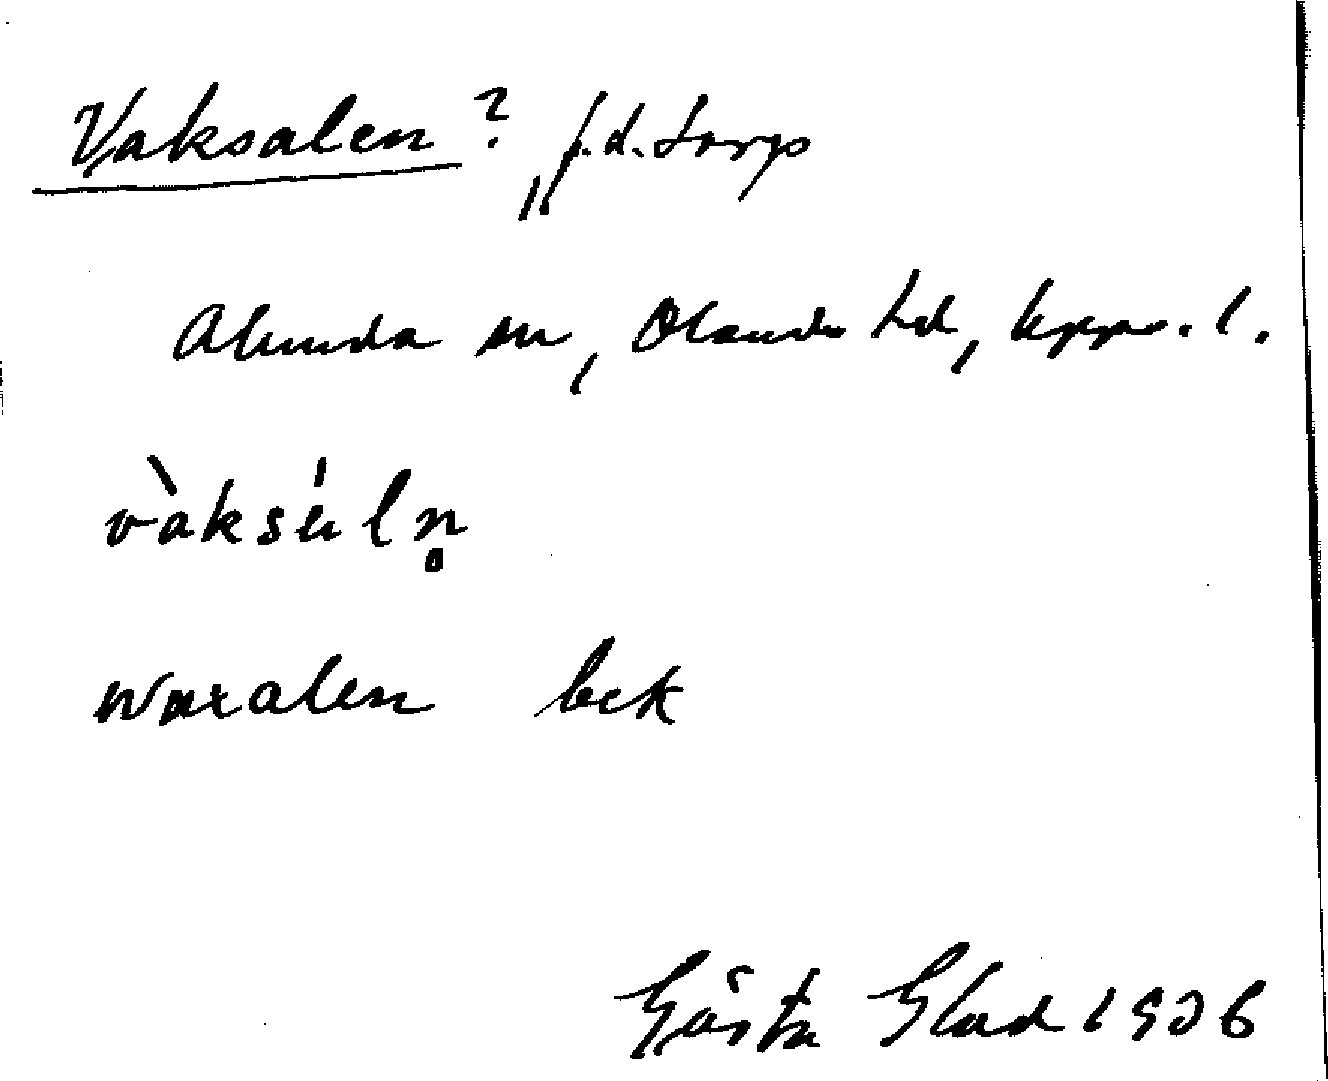 Vaksalen?, f.d. torp
Alunda sn, Olands hd, Upps. l.
vàksáln̥
Waxalen bek
Gösta Glad 1936